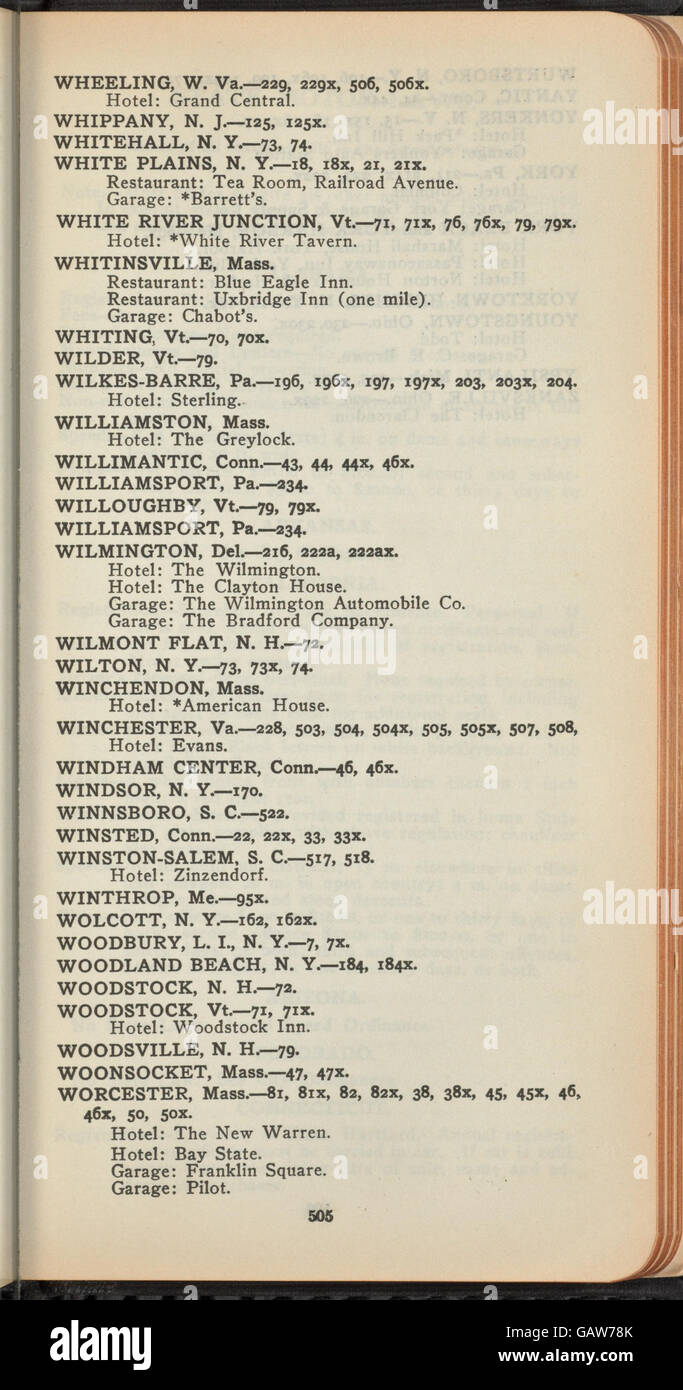 WHEELING, W. Va.—229, 229x, 506, 506x.
Hotel: Grand Central.
WHIPPANY, N. J.—125, 125x.
WHITEHALL, N. Y.—73, 74.
WHITE PLAINS, N. Y.—18, 18x, 21, 21x.
Restaurant: Tea Room, Railroad Avenue.
Garage: *Barrett's.
WHITE RIVER JUNCTION, Vt.—71, 71x, 76, 76x, 79, 79x.
Hotel: *White River Tavern.
WHITINSVILLE, Mass.
Restaurant: Blue Eagle Inn.
Restaurant: Uxbridge Inn (one mile).
Garage: Chabot's.
WHITING, Vt.—70, 70x.
WILDER, Vt.—79.
WILKES-BARRE, Pa.—196, 196x, 197, 197x, 203, 203x, 204.
Hotel: Sterling.
WILLIAMSTON, Mass.
Hotel: The Greylock.
WILLIMANTIC, Conn.—43, 44, 44x, 46x.
WILLIAMSPORT, Pa.—234.
WILLOUGHBY, Vt.—79, 79x.
WILLIAMSPORT, Pa.—234.
WILMINGTON, Del.—216, 222a, 222ax.
Hotel: The Wilmington.
Hotel: The Clayton House.
Garage: The Wilmington Automobile Co.
Garage: The Bradford Company.
WILMONT FLAT, N. H.—72.
WILTON, N. Y.—73, 73x, 74.
WINCHENDON, Mass.
Hotel: *American House.
WINCHESTER, Va.—228, 503, 504, 504x, 505, 505x, 507, 508,
Hotel: Evans.
WINDHAM CENTER, Conn.—46, 46x.
WINDSOR, N. Y.—170.
WINNSBORO, S. C.—522.
WINSTED, Conn.—22, 22x, 33, 33x.
WINSTON-SALEM, S. C.—517, 518.
Hotel: Zinzendorf.
WINTHROP, Me.—95x.
WOLCOTT, N. Y.—162, 162x.
WOODBURY, L. I., N. Y.—7, 7x.
WOODLAND BEACH, N. Y.—184, 184x.
WOODSTOCK, N. H.—72.
WOODSTOCK, Vt.—71, 71x.
Hotel: Woodstock Inn.
WOODSVILLE, N. H.—79.
WOONSOCKET, Mass.—47, 47x.
WORCESTER, Mass.—81, 81x, 82, 82x, 38, 38x, 45, 45x, 46,
46x, 50, 50x.
Hotel: The New Warren.
Hotel: Bay State.
Garage: Franklin Square.
Garage: Pilot.
505
alamy
Image ID: GAW78K
www.alamy.com